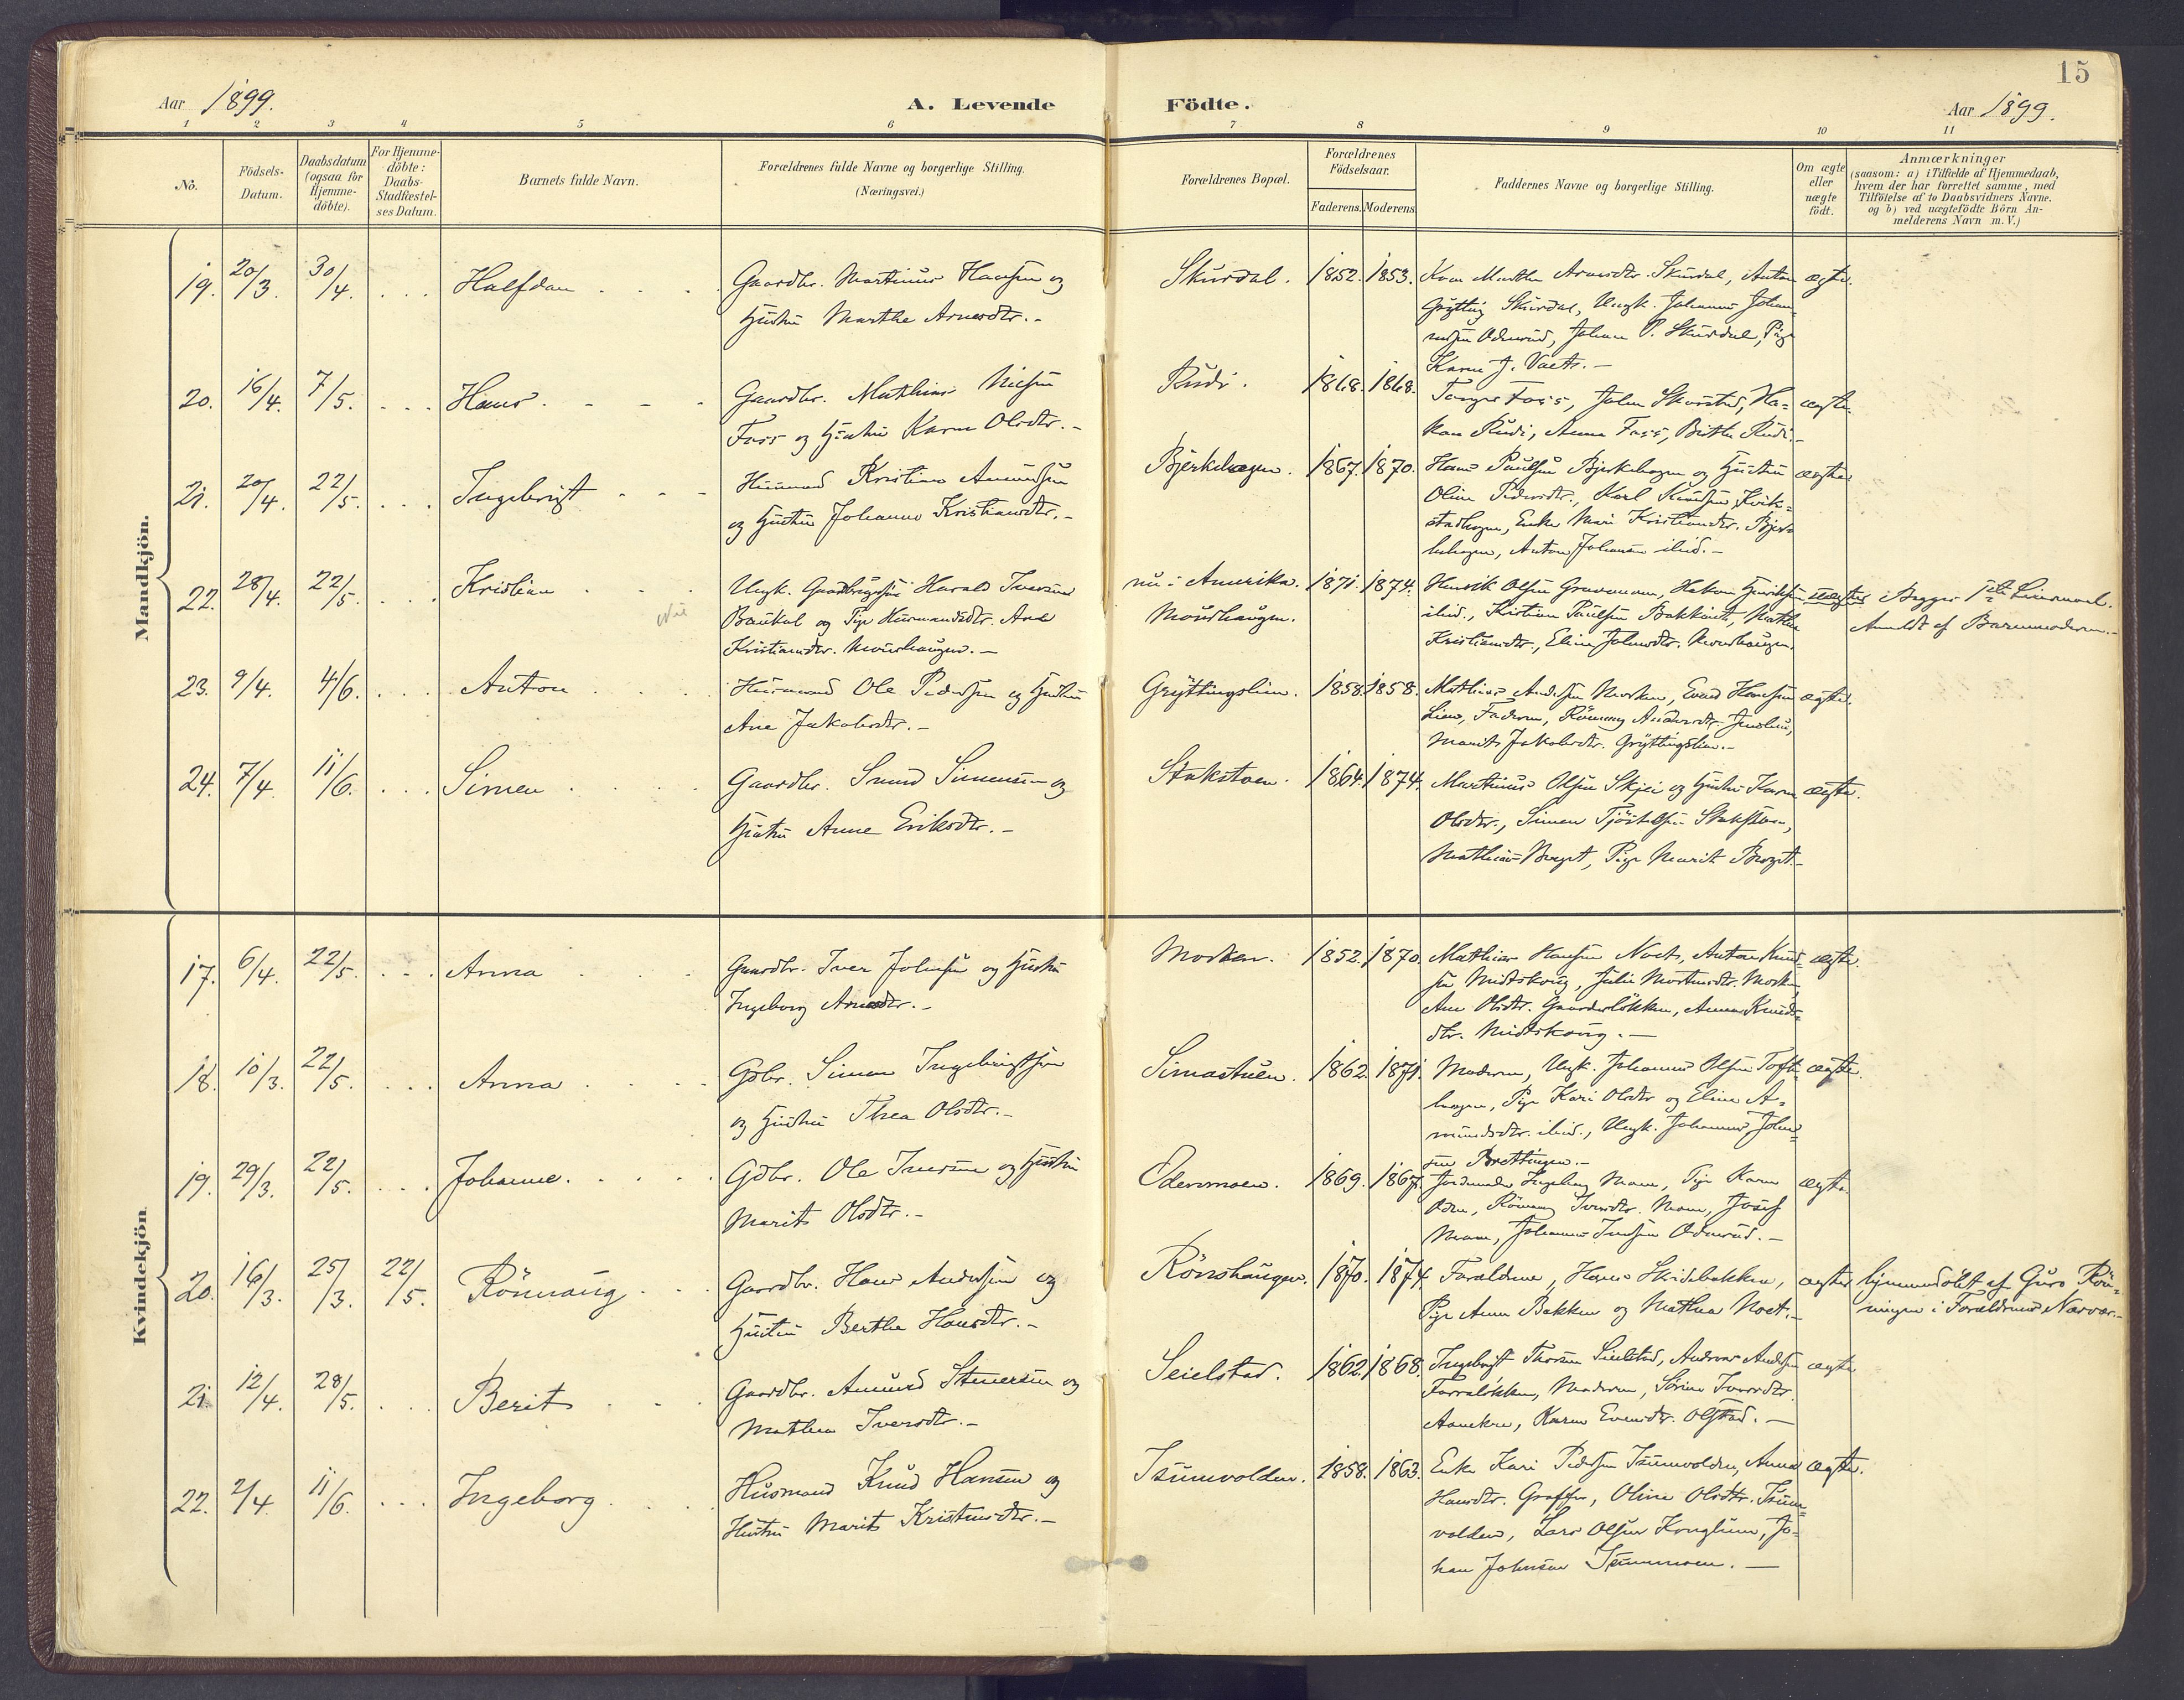 15
Aar 1899.
A. Levende Födte.
Aar 1899.
1 2 3 4 5 6 7 8 9 10 11
No.
Födsels-Datum.
Daabsdatum (ogsaa for Hjemme-döbte).
For Hjemme-döbte: Daabs-Stadfæstel-ses Datum.
Barnets fulde Navn.
Forældrenes fulde Navne og borgerlige Stilling.
(Næringsvei.)
Forældrenes Bopæl.
Forældrenes Födselsaar.
Faderens. Moderens.
Faddernes Navne og borgerlige Stilling.
Om ægte eller uægte födt.
Anmærkninger
(saasom: a) i Tilfælde af Hjemmedaab,
hvem der har forrettet samme, med
Tilföielse af to Daabsvidners Navne.
og b) ved uægtefödte Börn An-
melderens Navn m. V.)
Mandkjön.
19. 20/3. 30/4. ... Halfdan
Gaardbr. Martinus Hansen og
Hustru Marthe Arnesdtr.-
Skurdal. 1852. 1853.
Kone Marthe Arnesdtr. Skurdal, Anton
Grytting Skurdal, Ungk. Johannes Johan-
nesen Odnrud, Johan P. Skurdal, Pige
Karen J. Vaets.-
ægte.
20. 16/4. 7/5. ... Hans.
Gaardbr. Mathias Nilsen
Foss og Hustru Karen Olsdtr.-
Rudi. 1868. 1868.
Torger Foss, John Skarstad, Ha=
kon Rudi, Anna Foss, Birthe Rudi.-
ægte.
21. 20/4. 22/5. ... Ingebrigt
Husmand Kristian Amundsen
og Hustru Johanne Kristiansdtr.-
Bjerkehagen. 1867. 1870.
Hans Paulsen Bjerkehagen og Hustru
Oline Pedersdtr., Karl Knudsen Kvik-
stadhagen, Enke Mari Kristiansdtr. Bjer-
kehagen, Anton Johansen ibid.-
ægte
22. 28/4. 22/5. ... Kristian
Ungk. Gaardbrugersøn Harald Iversen
Baukal og Pige Husmandsdtr. Ane
Kristiansdtr. Moushaugen.-
nu i Amerika.
Moushaugen.
1871. 1874.
Henrik Olsen Gravemoen, Hakon Henriksen
ibid., Kristian Paulsen Bakkint, Mathea
Kristiansdtr., Eline Johnsdtr. Moushaugen.
uægte
Begges 1ste Leiermaal.
Anmeldt af Barnemoderen.-
23. 9/4. 4/6. ... Anton
Husmand Ole Pedersen og Hustru
Ane Jakobsdtr.-
Gryttingslien. 1858. 1858.
Mathias Andersen Morken, Evend Hansen
Lien, Faderen, Rönnaug Andersdtr. Jonslien,
Marit Jakobsdtr. Gryttingslien.-
ægte.
24. 7/4. 11/6. ... Simen
Gaardbr. Svend Simensen og
Hustru Anne Eriksdtr.-
Stakstoen. 1864. 1874.
Martinus Olsen Skjei og Hustru Karen
Olsdtr., Simen Tjöstelsen Stakstoen,
Mathias Berget, Pige Marit Berget.-
ægte.
Kvindekjön
17. 6/4. 22/5. ... Anna
Gaardbr. Iver Johnsen og Hustru
Ingeborg Arnesdtr.-
Morken. 1852. 1870.
Mathias Hansen Noet, Anton Knud-
sen Midtskoug, Julie Mortensdtr. Morken,
Ane Olsdtr. Gaarderlökken, Anna Knuds-
dtr. Midtskoug.-
ægte.
18. 10/3. 22/5. ... Anna
Gdbr. Simen Ingebrigtsen
og Hustru Thea Olsdtr.-
Simastuen. 1862. 1871.
Moderen, Ungk. Johannes Olsen Toft-
hagen, Pige Kari Olsdtr og Eline A-
mundsdtr. ibid., Ungk. Johannes John-
sen Brettingen.-
ægte.
19. 29/3. 22/5. ... Johanne.
Gdbr. Ole Iversen og Hustru
Marit Olsdtr.-
Odenmoen. 1869. 1867.
Jordmoder Ingeborg Moen, Pige Karen
Oden, Rönnaug Iversdtr. Moen, Josef
Moen, Johannes Knudsen Odnrud.-
ægte.
20. 16/3. 25/3. 22/5. Rönnaug
Gaardbr. Hans Andersen og
Hustru Berthe Hansdtr.-
Rönshaugen. 1870. 1874.
Forældrene, Hans Skridebakken,
Pige Anne Bakken og Mathea Noet.-
ægte
hjemmedöbt af Guro Rön-
ningen i Forældrenes Nærvær.-
21. 12/4. 28/5. ... Berit
Gaardbr. Amund Stenersen og
Mathea Iversdtr.-
Seielstad. 1862. 1868.
Ingebrigt Thorsen Seielstad, Andreas Andersen
Forralökken, Moderen, Sörine Iversdtr.
Aanekre, Karen Evensdtr. Olstad.-
ægte
22. 2/4. 11/6. ... Ingeborg
Husmand Knud Hansen og
Hustru Marit Kristensdtr.-
Isumvolden. 1858. 1863.
Enke Kari Pedersen Isumvolden, Anna
Hansdtr. Graffer, Oline Olsdtr. Isum-
volden, Lars Olsen Konglien, Jo-
han Johnsen Isummoen.-
ægte.